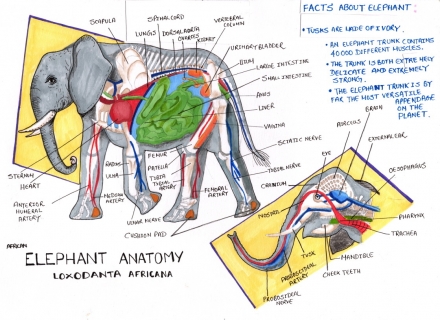 FACTS ABOUT ELEPHANT:
• TUSKS ARE MADE OF IVORY.
• AN ELEPHANT TRUNK CONTAINS
40000 DIFFERENT MUSCLES.
• THE TRUNK IS BOTH EXTREMELY
DELICATE AND EXTREMELY
STRONG.
• THE ELEPHANT TRUNK IS BY
FAR THE MOST VERSATILE
APPENDAGE
ON THE
PLANET.
SCAPULA
SPINALCORD
LUNGS
DORSALAORTA
OVARIES
KIDNEY
VERTEBRAL
COLUMN
URINARYBLADDER
ILIUM
LARGE INTESTINE
SMALL INTESTINE
ANUS
LIVER
VAGINA
SCIATIC NERVE
TIBIAL NERVE
STERNUM
HEART
ANTERIOR
HUMERAL
ARTERY
RADIUS
ULNA
MEDIAN
ARTERY
FEMUR
PATELLA
TIBIA
TIBIAL ARTERY
FEMORAL
ARTERY
ULNAR NERVE
CUSHION PAD
BRAIN
EYE
EXTERNAL EAR
CRANIUM
OESOPHAGUS
NOSTRIL
PHARYNX
TRACHEA
TUSK
MANDIBLE
PROBOSCIDEAL
ARTERY
CHEEK TEETH
PROBOSIDEAL
NERVE
AFRICAN
ELEPHANT ANATOMY
LOXODANTA AFRICANA